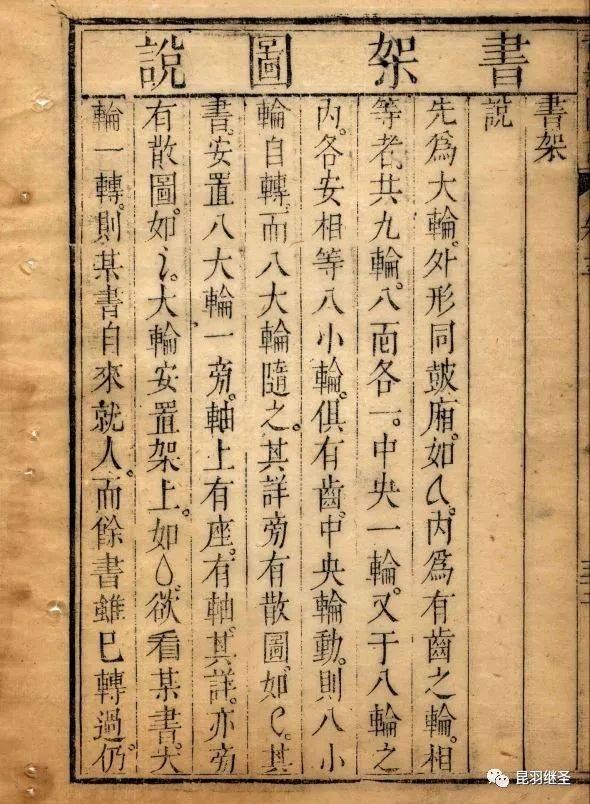 書架圖說
書架
說
先爲大輪。外形同皷廂。如。內爲有齒之輪。相
等者。共九輪。八面各一。中央一輪。又于八輪之
內。各安相等八小輪。俱有齒。中央輪動。則八小
輪自轉。而八大輪隨之。其詳旁有散圖。如。其
書。安置八大輪一旁。軸上有座。有軸。其詳。亦旁
有散圖。如。大輪安置架上。如。欲看某書。大
輪一轉。則某書自來就人。而餘書雖已轉過。仍
昆羽继圣